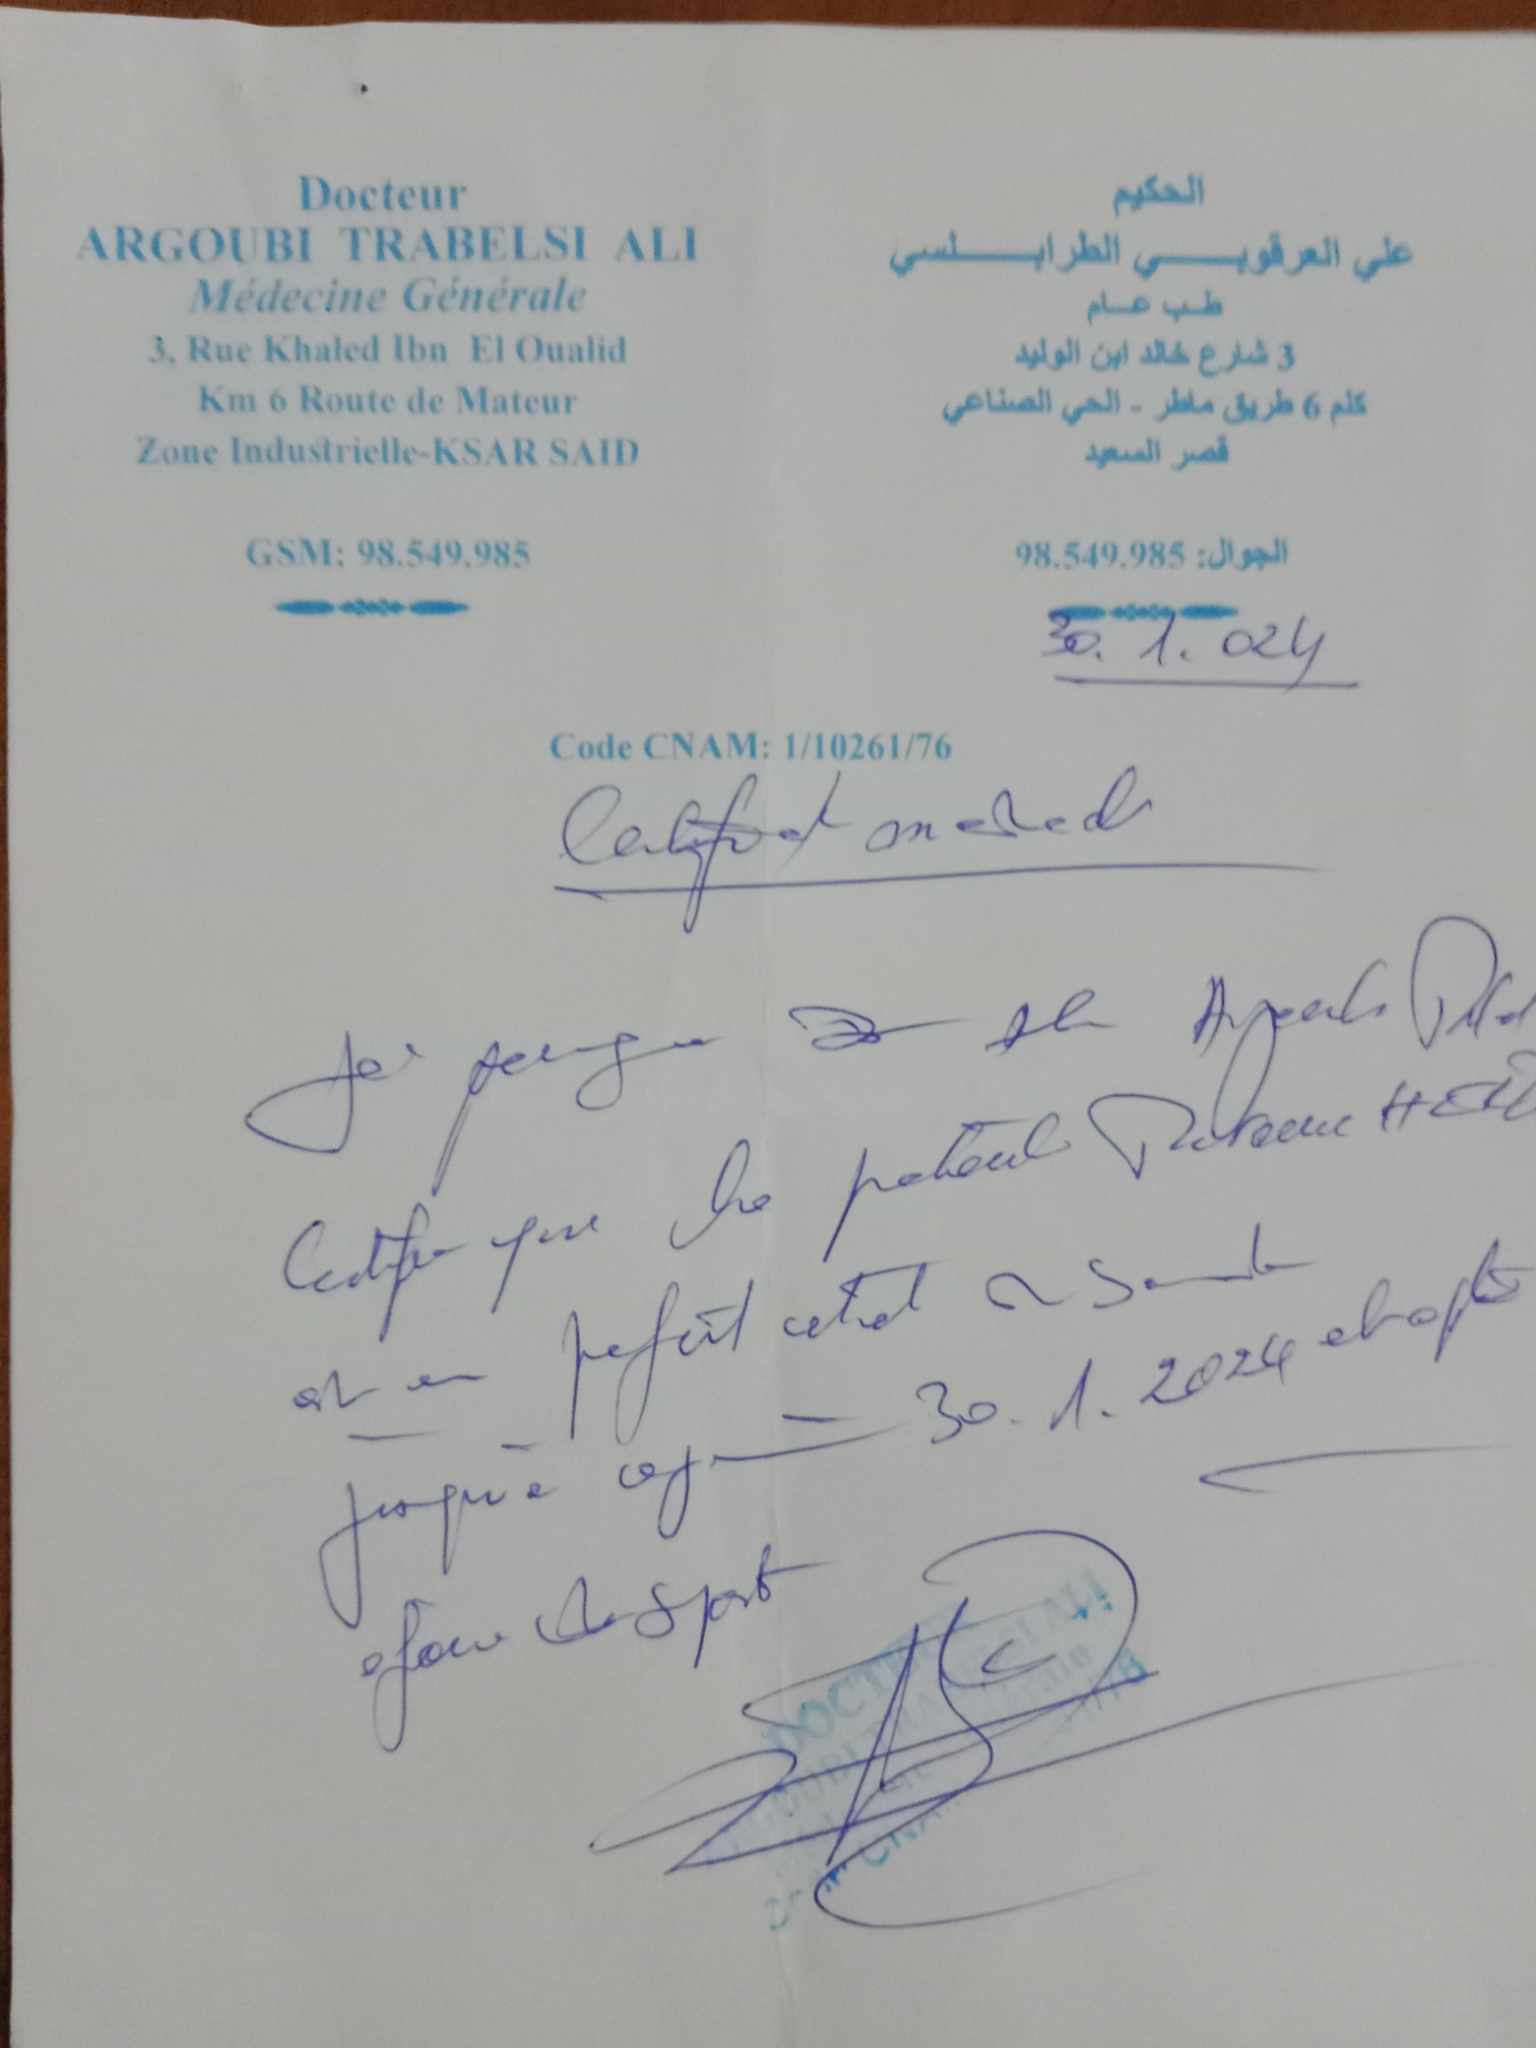 Docteur
ARGOUBI TRABELSI ALI
Médecine Générale
3, Rue Khaled Ibn El Oualid
Km 6 Route de Mateur
Zone Industrielle-KSAR SAID
GSM: 98.549.985
الحكيم
علي العرقوبي الطرابلسي
طب عام
3 شارع خالد ابن الوليد
كلم 6 طريق ماطر - الحي الصناعي
قصر السعيد
الجوال: 98.549.985
30.1.024
Code CNAM: 1/10261/76
Certificat medical
Je soussigné Dr Ali Argoubi
Certifie que le patient
est en parfait etat de Sante
jusqu'à ce jour 30.1.2024 et apte
a faire du Sport
DOCTEUR